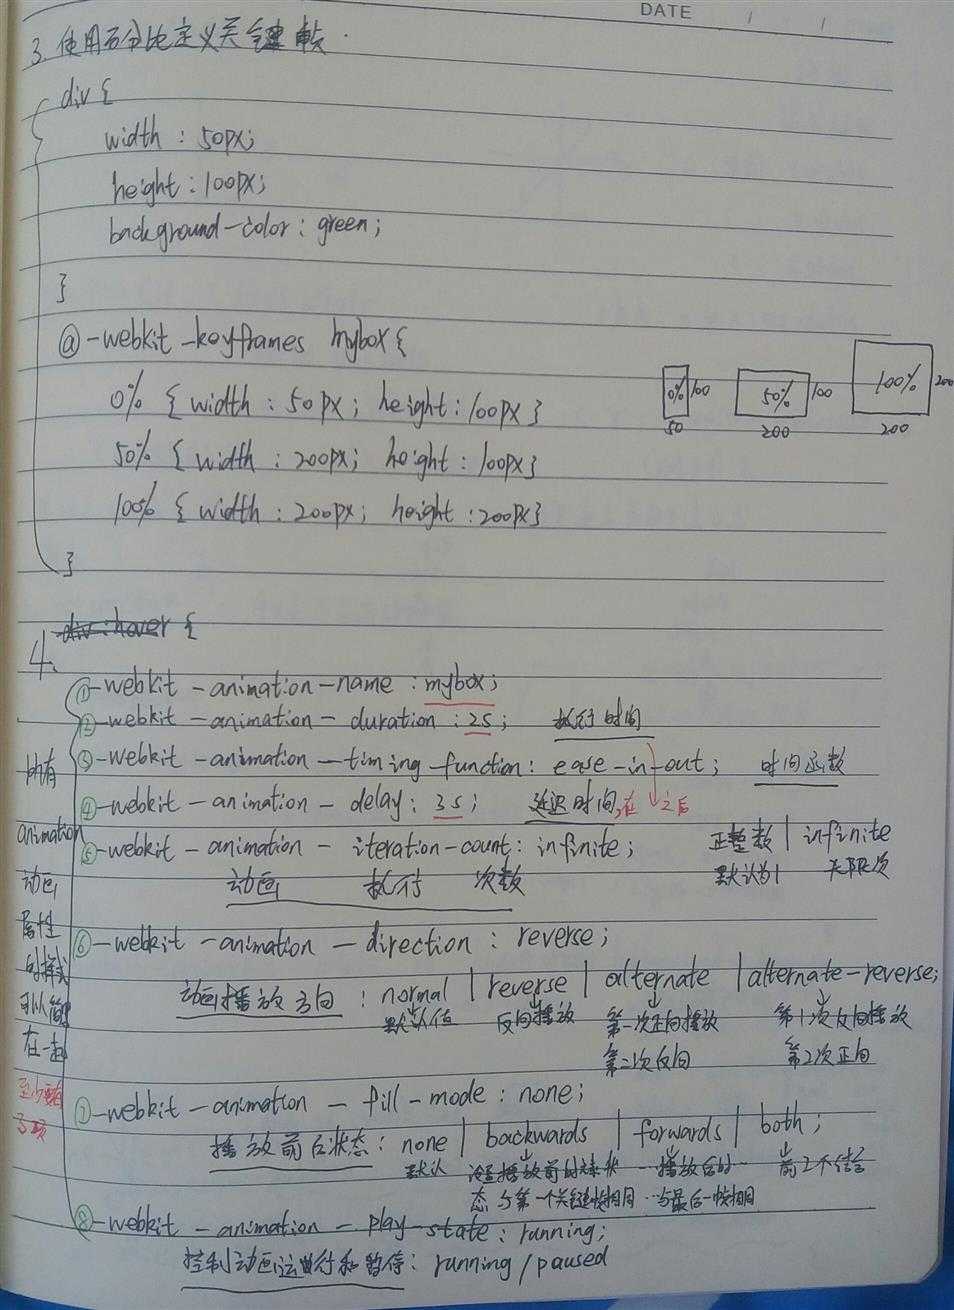 DATE / /
3. 使用百分比定义关键帧.
div {
width : 50px;
height : 100px;
background-color : green;
}
@-webkit-keyframes mybox {
0% { width : 50px; height : 100px }
50% { width : 200px; height : 100px }
100% { width : 200px; height : 200px }
}
0% 100 50
50% 100 200
100% 200 200
4. div:hover {
①-webkit-animation-name : mybox;
②-webkit-animation-duration : 2s; 执行时间
③-webkit-animation-timing-function : ease-in-out; 时间函数
④-webkit-animation-delay : 3s; 延迟时间,在 之后
⑤-webkit-animation-iteration-count : infinite; 正整数 | infinite
默认为1 无限次
动画 执行 次数
⑥-webkit-animation-direction : reverse;
动画播放方向 : normal | reverse | alternate | alternate-reverse;
默认值 反向播放 第一次正向播放 第1次反向播放
第二次反向 第2次正向
⑦-webkit-animation-fill-mode : none;
播放前后状态 : none | backwards | forwards | both ;
默认 设置播放前的状 …播放后的… 前2个结合
态与第一个关键帧相同 …与最后一帧相同
⑧-webkit-animation-play-state : running;
控制动画运行和暂停 : running / paused
所有
animation
动画
属性
的样式
可以简
在一起
至少要有